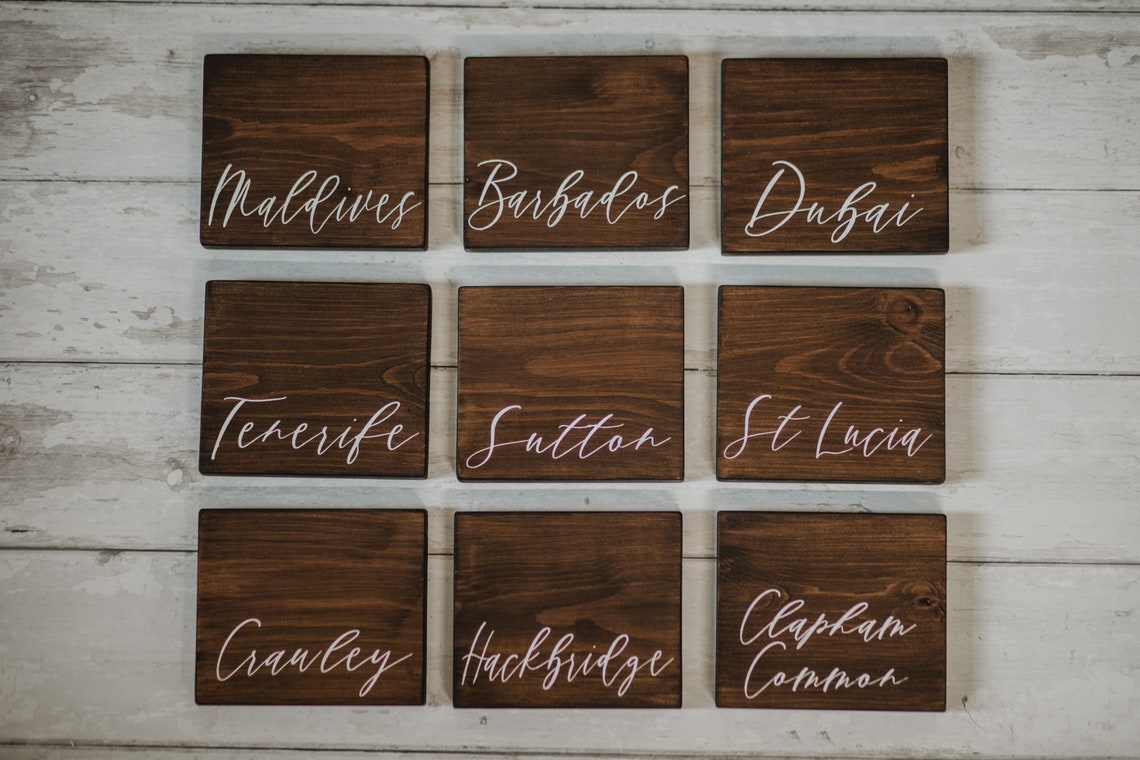 Maldives
Barbados
Dubai
Tenerife
Sutton
St Lucia
Crawley
Hackbridge
Clapham
Common